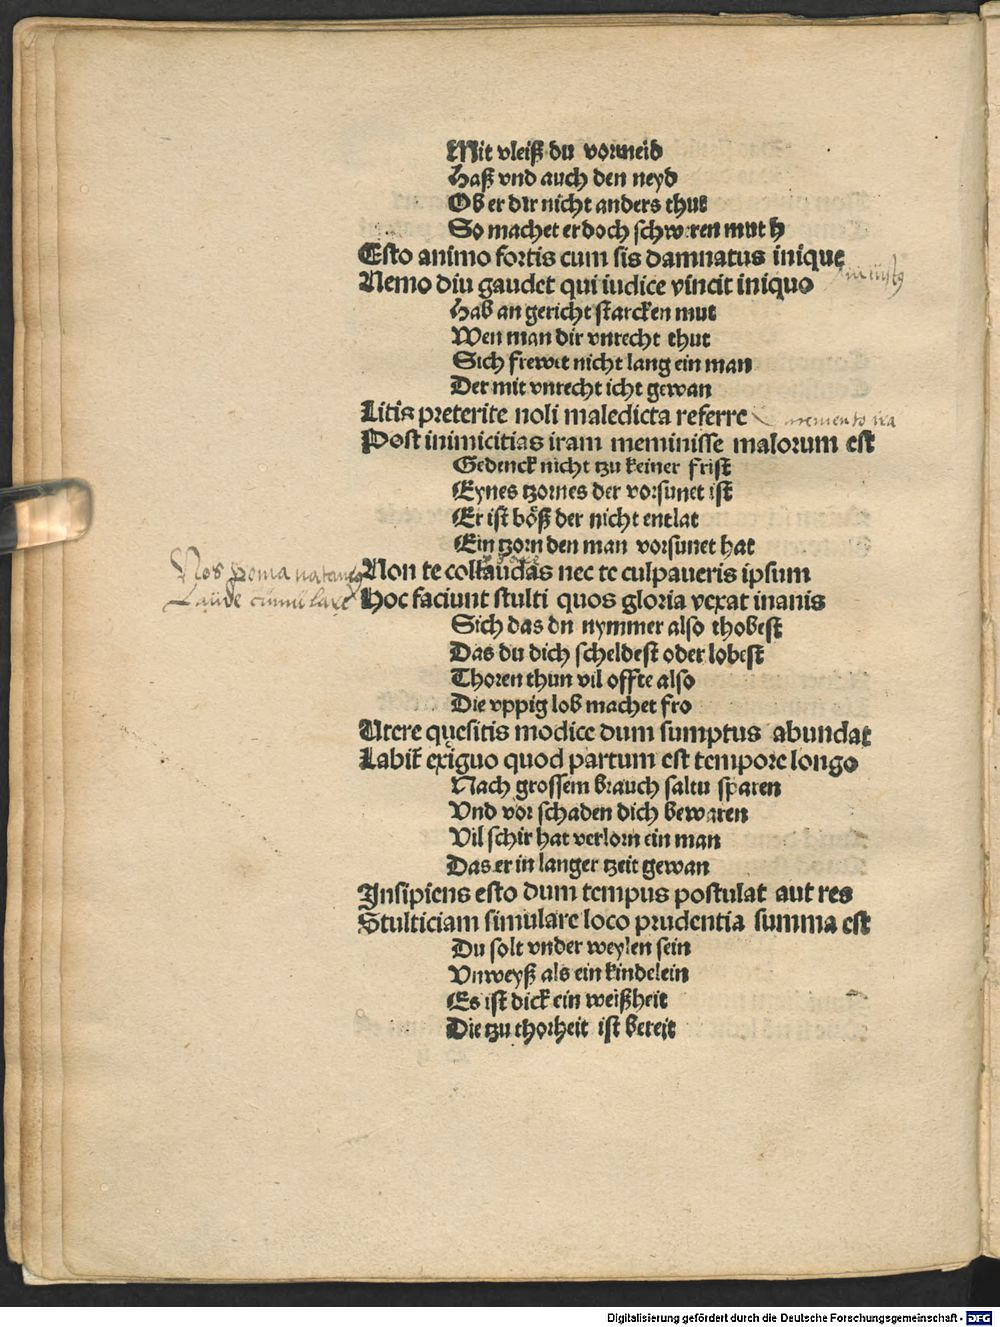 Mit vleiß du vormeid
Haß vnd auch den neyd
Ob er dir nicht anders thut
So machet er doch schweren mut h
Esto animo fortis cum sis damnatus inique
Nemo diu gaudet qui iudice vincit iniquo
Hab an gericht starcken mut
Wen man dir vnrecht thut
Sich frewet nicht lang ein man
Der mit vnrecht icht gewan
Litis preterite noli maledicta referre
memento ira
Post inimicitias iram meminisse malorum est
Gedenck nicht tzu keiner frist
Eynes tzornes der vorsunet ist
Er ist böß der nicht entlat
Ein tzorn den man vorsunet hat
Nos poma natamus
Non te collaudas nec te culpaueris ipsum
Hoc faciunt stulti quos gloria vexat inanis
Sich das dn nymmer also thobest
Das du dich scheldest oder lobest
Thoren thun vil offte also
Die vppig lob machet fro
Utere quęsitis modice dum sumptus abundat
Labit̄ exiguo quod partum est tempore longo
Nach grossem brauch saltu sparen
Vnd vor schaden dich bewaren
Vil schir hat verlorn ein man
Das er in langer tzeit gewan
Insipiens esto dum tempus postulat aut res
Stulticiam simulare loco prudentia summa est
Du solt vnder weylen sein
Vnweyß als ein kindelein
Es ist dick ein weißheit
Die tzu thorheit ist bereit
Digitalisierung gefördert durch die Deutsche Forschungsgemeinschaft - DFG